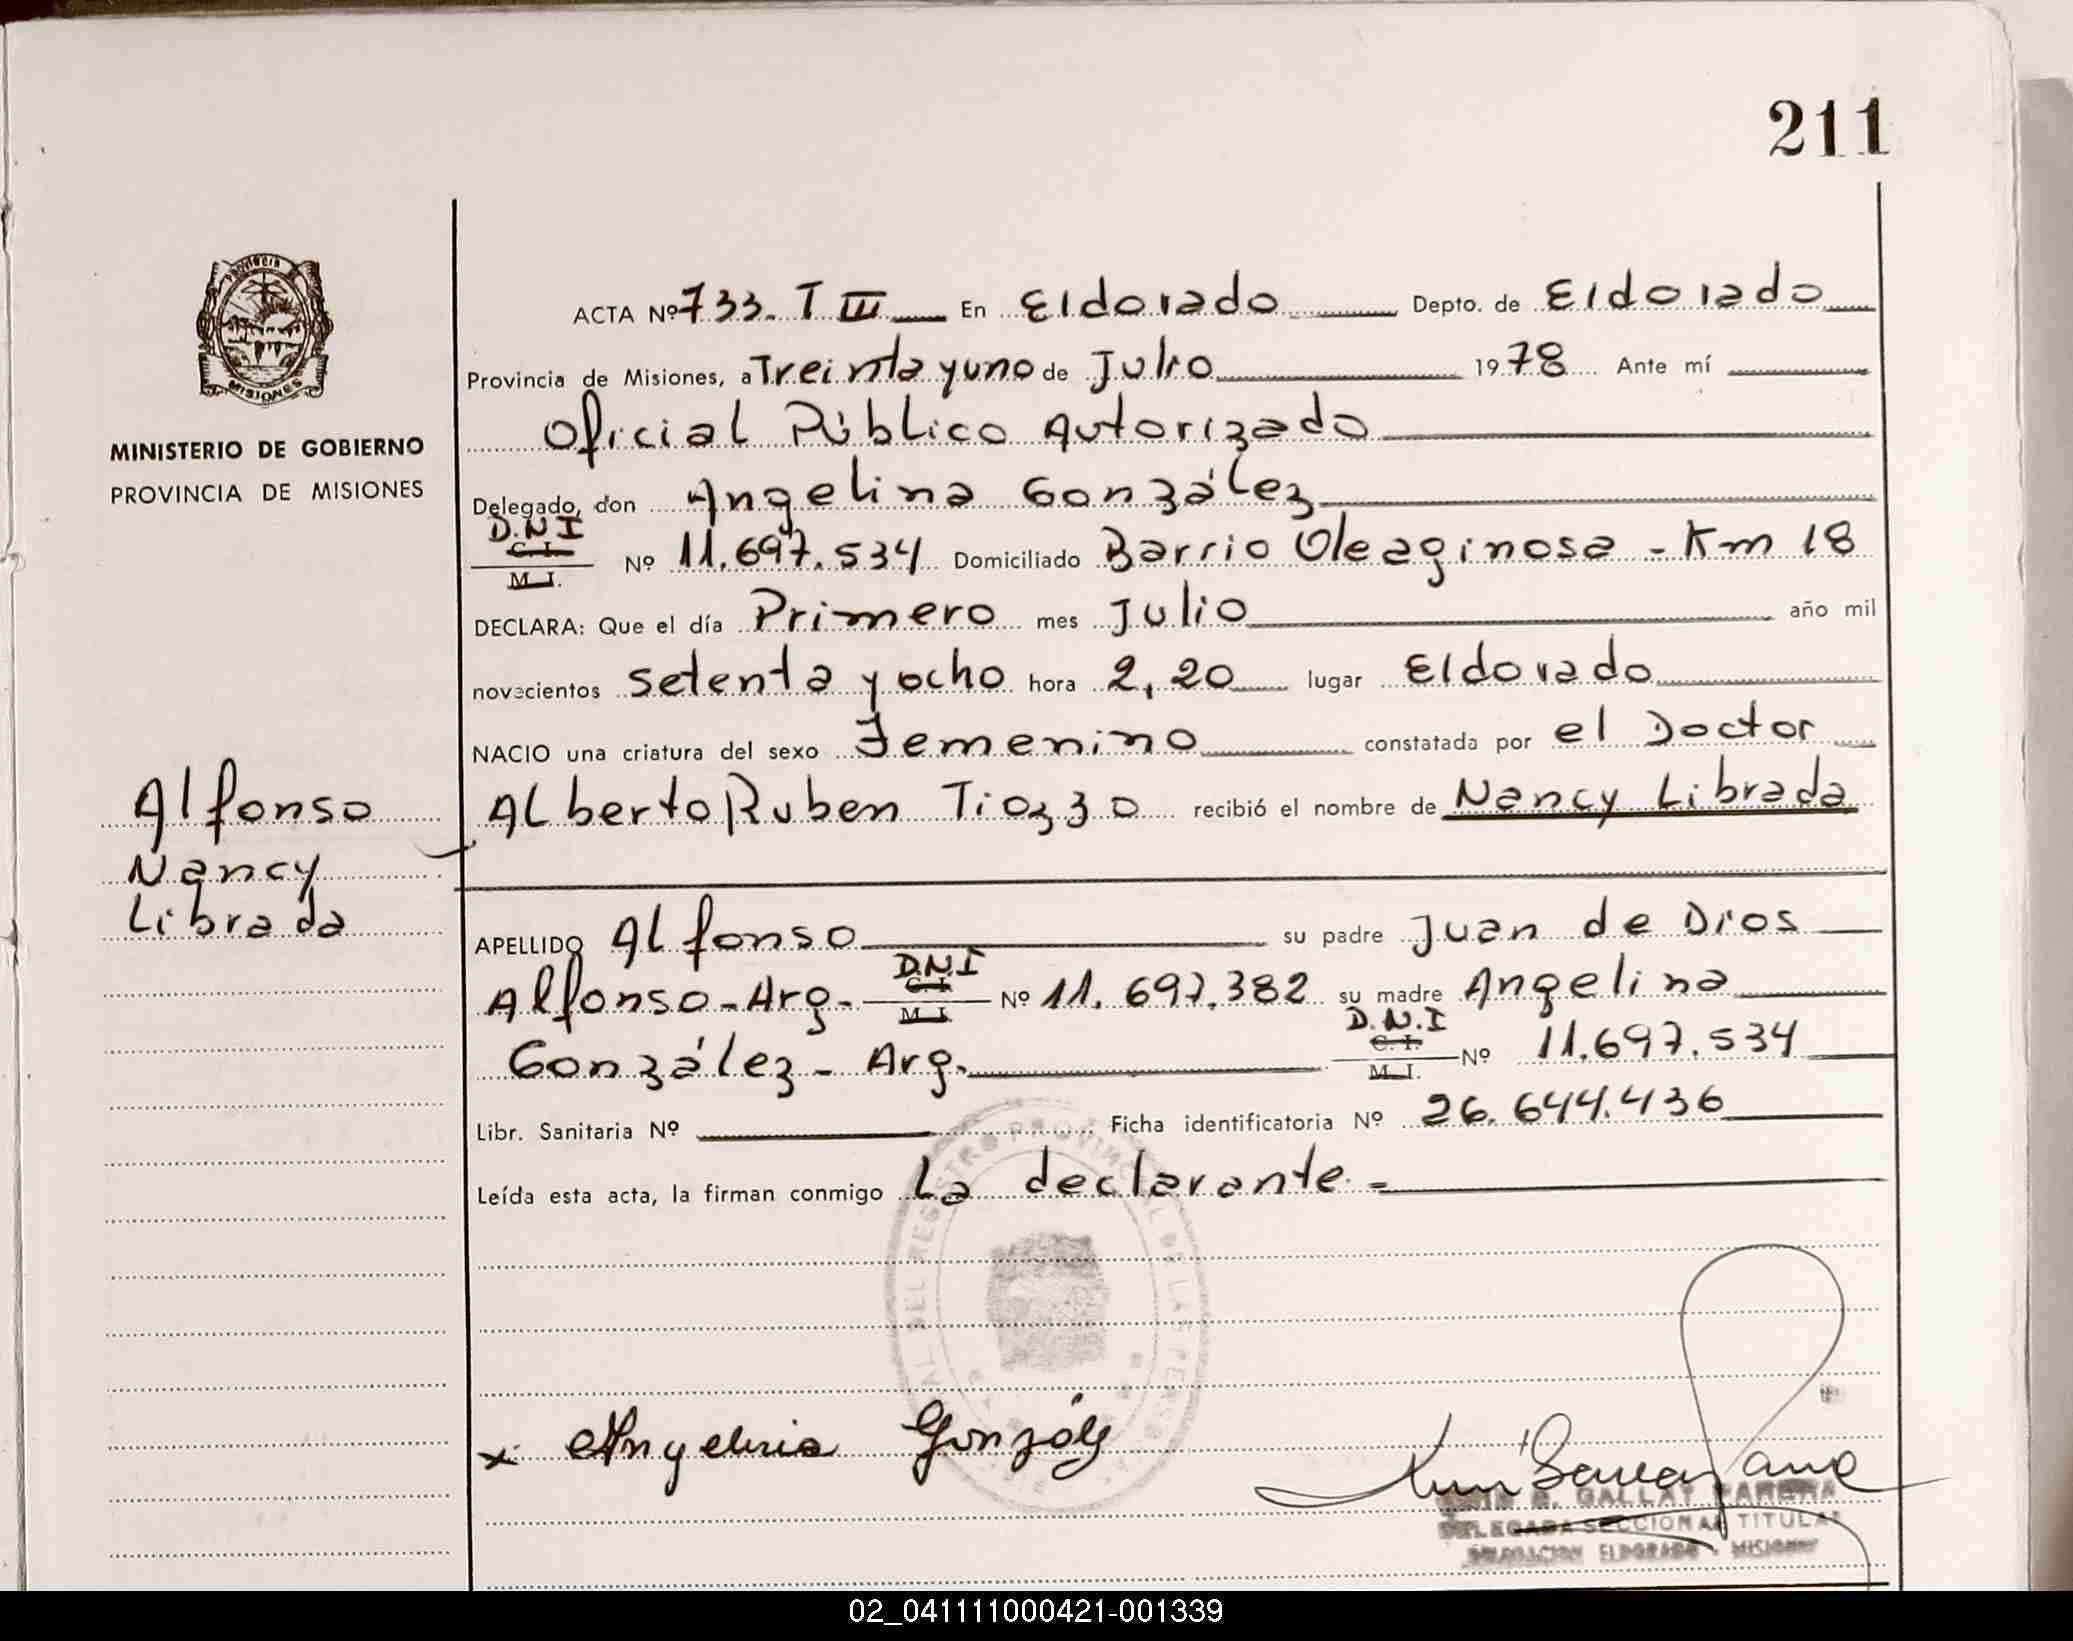 211
PROVINCIA
MISIONES
MINISTERIO DE GOBIERNO
PROVINCIA DE MISIONES
ACTA Nº 733. T III En Eldorado Depto. de Eldorado
Provincia de Misiones, a Treinta y uno de Julio 1978 Ante mí
Oficial Público Autorizado
Delegado, don Angelina González
D.N.I
C. I.
M. I.
Nº 11.697.534 Domiciliado Barrio Oleaginosa - Km 18
DECLARA: Que el día Primero mes Julio año mil
novecientos setenta y ocho hora 2,20 lugar Eldorado
NACIO una criatura del sexo Femenino constatada por el Doctor
Alberto Ruben Tiozzo recibió el nombre de Nancy Librada
Alfonso
Nancy
Librada
APELLIDO Alfonso su padre Juan de Dios
Alfonso - Arg. - D.N.I C. I. M. I. Nº 11.697.382 su madre Angelina
González - Arg. D.N.I C. I. M. I. Nº 11.697.534
Libr. Sanitaria Nº Ficha identificatoria Nº 26.644.436
Leída esta acta, la firman conmigo La declarante. -
DEL REGISTRO PROVINCIAL DE LAS PERSONAS
x Angelina González
GALLAY
DELEGADA SECCIONAL TITULAR
DELEGACION ELDORADO - MISIONES
02_041111000421-001339